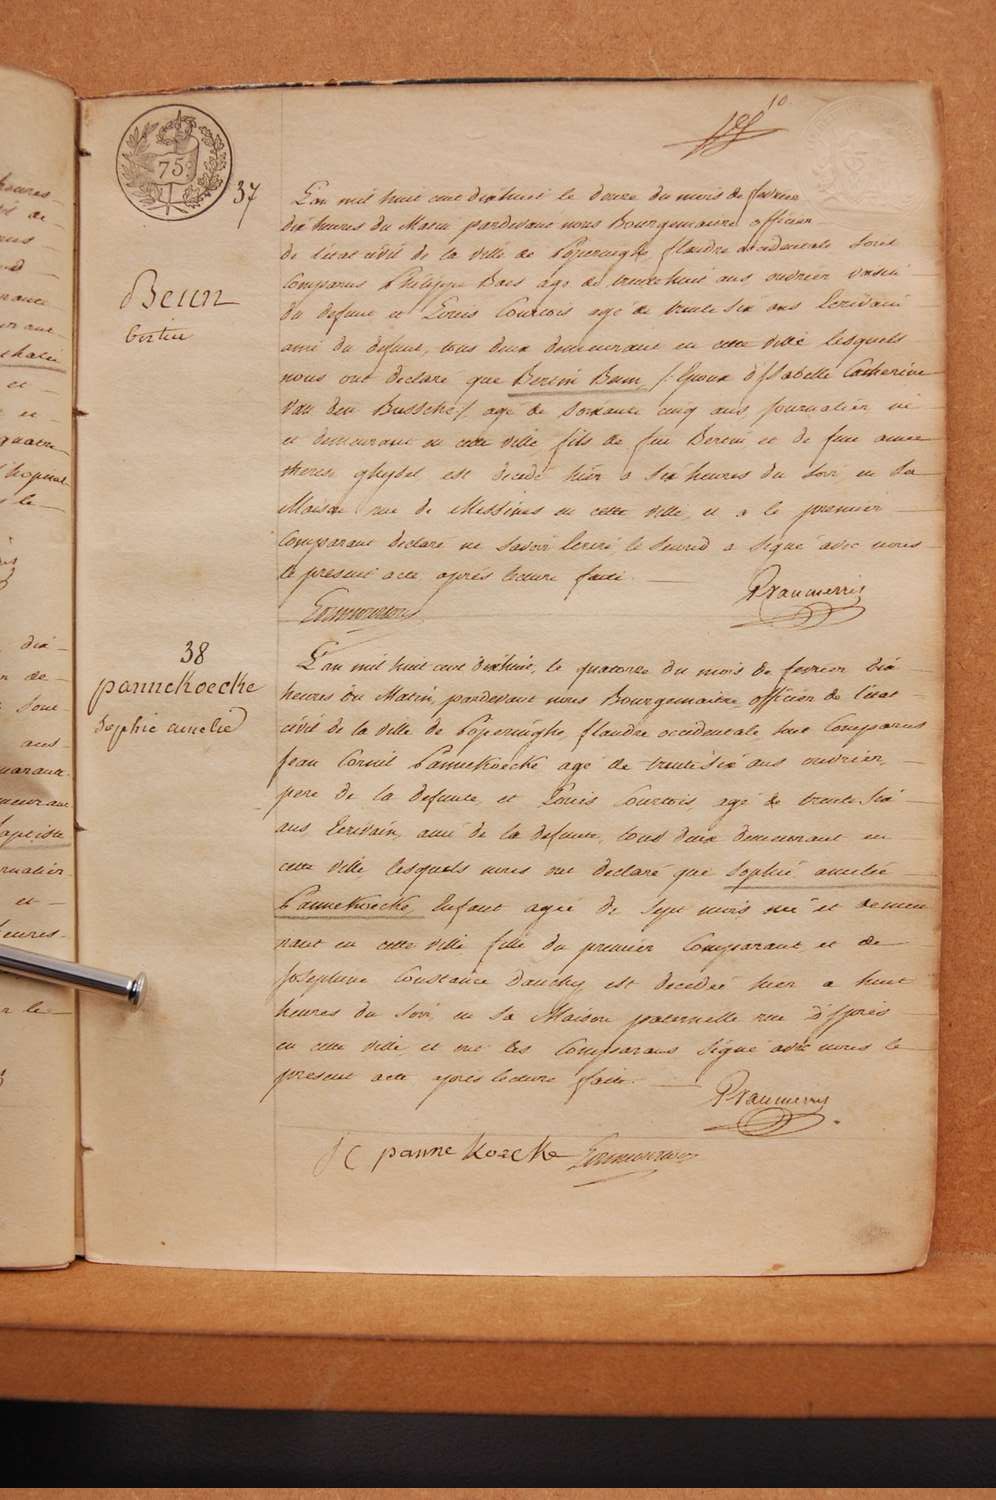 10
75
37
L'an mil huit cent dixhuit le douze du mois de fevrier
dix heures du Matin pardevant nous Bourgemaitre officier
de l'état civil de la ville de Poperinghe flandre occidentale sont
Comparus Philippe Baes agé de trente huit ans ouvrier voisin
Beun
bertin
du defunt et Louis Courtois agé de trente Six ans Ecrivain
ami du defunt, tous deux demeurant en cette ville lesquels
nous ont declaré que Bertin Beun, /: Epoux d'Isabelle Catherine
Van den Bussche :/ agé de soixante cinq ans journalier né
et demeurant en cette ville fils de feu Bertin et de feue anne
therese ghysel est decedé hier a Six heures du Soir en Sa
Maison rue de Messines en cette ville, et a le premier
Comparant declaré ne Savoir Ecrire le Second a Signé avec nous
le present acte après lecture faite.
38
pannekoecke
Sophie amelie
L'an mil huit cent dixhuit, le quatorze du mois de fevrier dix
heures du Matin, pardevant nous Bourgemaitre officier de l'état
civil de la ville de Poperinghe, flandre occidentale, sont Comparus
Jean Cornil Pannekoecke agé de trente Six ans ouvrier,
pere de la defunte, et Louis Courtois, agé de trente Six
ans, Ecrivain, ami de la defunte, tous deux demeurant en
cette ville lesquels nous ont declaré que Sophie amelie
Pannekoecke, Enfant agée de Sept mois née et demeu
rant en cette ville fille du premier Comparant, et de
Josephine Constance Dauchy est decedée hier a huit
heures du Soir en Sa Maison paternelle rue d'Ypres
en cette ville et ont les Comparans Signé avec nous le
present acte apres lecture faite.
JC pannekoecke